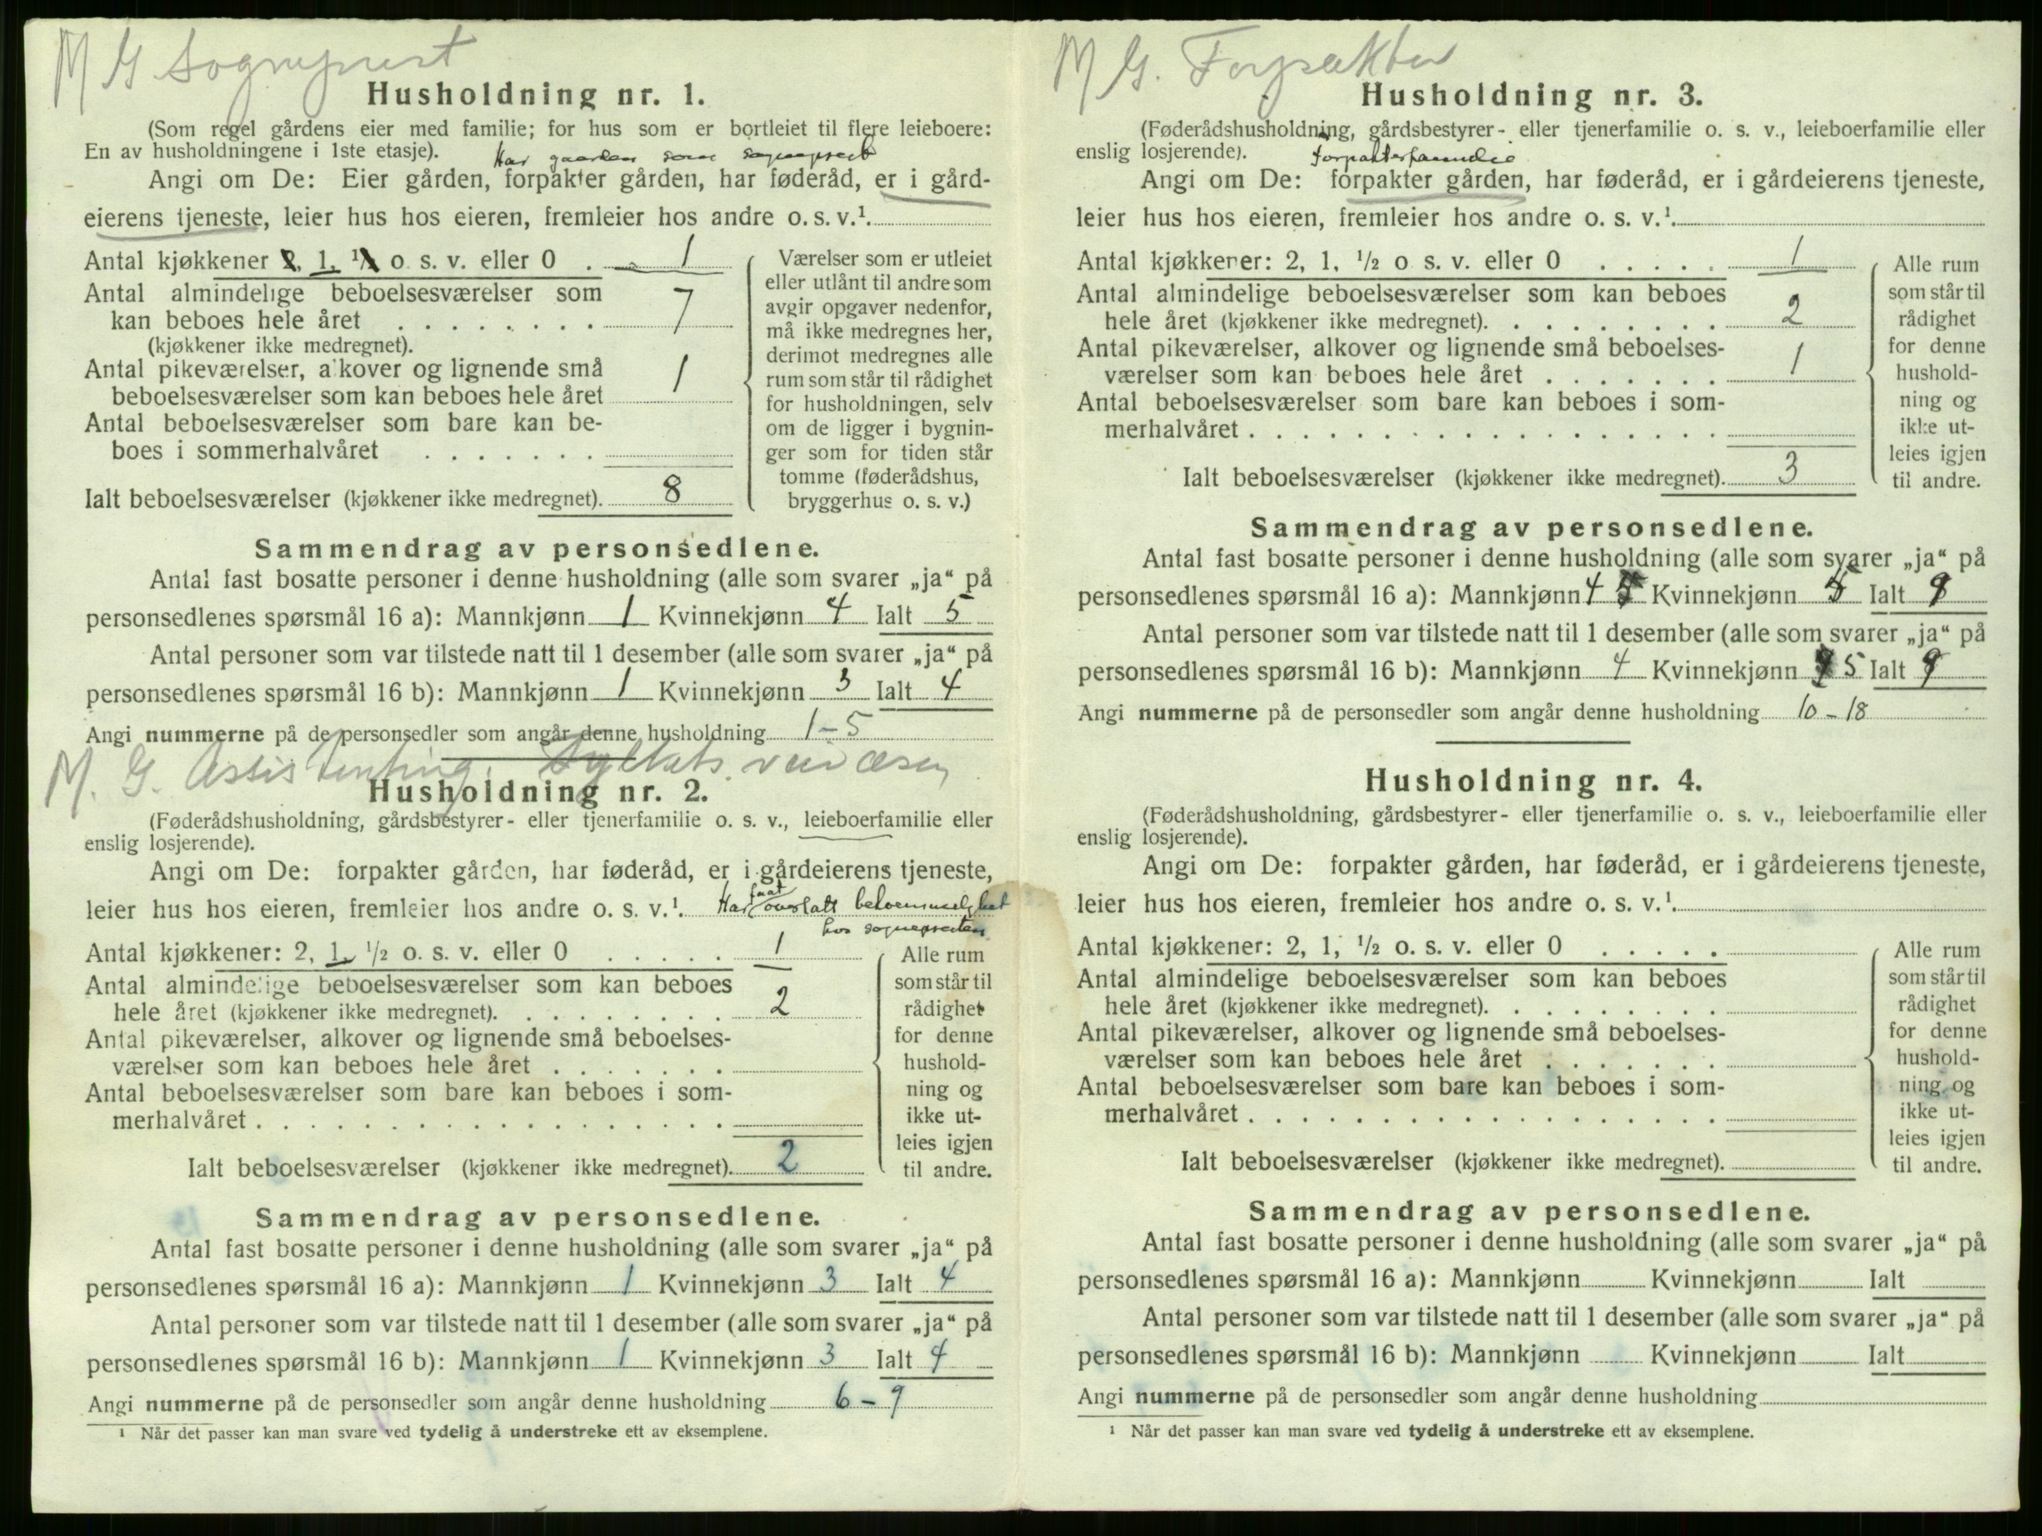 M G Sogneprest
Husholdning nr. 1.
(Som regel gårdens eier med familie; for hus som er bortleiet til flere leieboere:
En av husholdningene i 1ste etasje).
Har gaarden som sogneprest
Angi om De: Eier gården, forpakter gården, har føderåd, er i gård-
eierens tjeneste, leier hus hos eieren, fremleier hos andre o. s. v.¹.
Antal kjøkkener 2, 1, ½ o. s. v. eller 0 . 1
Antal almindelige beboelsesværelser som
kan beboes hele året . . . . . . . . 7
(kjøkkener ikke medregnet).
Antal pikeværelser, alkover og lignende små
beboelsesværelser som kan beboes hele året 1
Antal beboelsesværelser som bare kan be-
boes i sommerhalvåret . . . . . . .
Ialt beboelsesværelser (kjøkkener ikke medregnet). 8
Værelser som er utleiet
eller utlånt til andre som
avgir opgaver nedenfor,
må ikke medregnes her,
derimot medregnes alle
rum som står til rådighet
for husholdningen, selv
om de ligger i bygnin-
ger som for tiden står
tomme (føderådshus,
bryggerhus o. s. v.)
Sammendrag av personsedlene.
Antal fast bosatte personer i denne husholdning (alle som svarer „ja“ på
personsedlenes spørsmål 16 a): Mannkjønn 1 Kvinnekjønn 4 Ialt 5
Antal personer som var tilstede natt til 1 desember (alle som svarer „ja“ på
personsedlenes spørsmål 16 b): Mannkjønn 1 Kvinnekjønn 3 Ialt 4
Angi nummerne på de personsedler som angår denne husholdning 1-5
M. G. Assistenting. Fylkets veivæsen
Husholdning nr. 2.
(Føderådshusholdning, gårdsbestyrer- eller tjenerfamilie o. s. v., leieboerfamilie eller
enslig losjerende).
Angi om De: forpakter gården, har føderåd, er i gårdeierens tjeneste,
leier hus hos eieren, fremleier hos andre o. s. v.¹. Har faat overlatt beboernuselighet
hos sognepresten
Antal kjøkkener: 2, 1, ½ o. s. v. eller 0 . . . . . 1
Antal almindelige beboelsesværelser som kan beboes
hele året (kjøkkener ikke medregnet). . . . . . . . . 2
Antal pikeværelser, alkover og lignende små beboelses-
værelser som kan beboes hele året . . . . . . .
Antal beboelsesværelser som bare kan beboes i som-
merhalvåret . . . . . . . . . . . . . . . . . .
Ialt beboelsesværelser (kjøkkener ikke medregnet). 2
Alle rum
som står til
rådighet
for denne
hushold-
ning og
ikke ut-
leies igjen
til andre.
Sammendrag av personsedlene.
Antal fast bosatte personer i denne husholdning (alle som svarer „ja“ på
personsedlenes spørsmål 16 a): Mannkjønn 1 Kvinnekjønn 3 Ialt 4
Antal personer som var tilstede natt til 1 desember (alle som svarer „ja“ på
personsedlenes spørsmål 16 b): Mannkjønn 1 Kvinnekjønn 3 Ialt 4
Angi nummerne på de personsedler som angår denne husholdning 6-9
¹ Når det passer kan man svare ved tydelig å understreke ett av eksemplene.
M G. Forpakter
Husholdning nr. 3.
(Føderådshusholdning, gårdsbestyrer- eller tjenerfamilie o. s. v., leieboerfamilie eller
enslig losjerende).
Forpakterfamilie
Angi om De: forpakter gården, har føderåd, er i gårdeierens tjeneste,
leier hus hos eieren, fremleier hos andre o. s. v.¹.
Antal kjøkkener: 2, 1, ½ o. s. v. eller 0 . . . . . 1
Antal almindelige beboelsesværelser som kan beboes
hele året (kjøkkener ikke medregnet). . . . . . . . . 2
Antal pikeværelser, alkover og lignende små beboelses-
værelser som kan beboes hele året . . . . . . . 1
Antal beboelsesværelser som bare kan beboes i som-
merhalvåret . . . . . . . . . . . . . . . . . .
Ialt beboelsesværelser (kjøkkener ikke medregnet). 3
Alle rum
som står til
rådighet
for denne
hushold-
ning og
ikke ut-
leies igjen
til andre.
Sammendrag av personsedlene.
Antal fast bosatte personer i denne husholdning (alle som svarer „ja“ på
personsedlenes spørsmål 16 a): Mannkjønn 4 Kvinnekjønn 5 Ialt 9
Antal personer som var tilstede natt til 1 desember (alle som svarer „ja“ på
personsedlenes spørsmål 16 b): Mannkjønn 4 Kvinnekjønn 5 Ialt 9
Angi nummerne på de personsedler som angår denne husholdning 10-18
Husholdning nr. 4.
(Føderådshusholdning, gårdsbestyrer- eller tjenerfamilie o. s. v., leieboerfamilie eller
enslig losjerende).
Angi om De: forpakter gården, har føderåd, er i gårdeierens tjeneste,
leier hus hos eieren, fremleier hos andre o. s. v.¹.
Antal kjøkkener: 2, 1, ½ o. s. v. eller 0 . . . . .
Antal almindelige beboelsesværelser som kan beboes
hele året (kjøkkener ikke medregnet). . . . . . . . .
Antal pikeværelser, alkover og lignende små beboelses-
værelser som kan beboes hele året . . . . . . .
Antal beboelsesværelser som bare kan beboes i som-
merhalvåret . . . . . . . . . . . . . . . . . .
Ialt beboelsesværelser (kjøkkener ikke medregnet).
Alle rum
som står til
rådighet
for denne
hushold-
ning og
ikke ut-
leies igjen
til andre.
Sammendrag av personsedlene.
Antal fast bosatte personer i denne husholdning (alle som svarer „ja“ på
personsedlenes spørsmål 16 a): Mannkjønn Kvinnekjønn Ialt
Antal personer som var tilstede natt til 1 desember (alle som svarer „ja“ på
personsedlenes spørsmål 16 b): Mannkjønn Kvinnekjønn Ialt
Angi nummerne på de personsedler som angår denne husholdning
¹ Når det passer kan man svare ved tydelig å understreke ett av eksemplene.